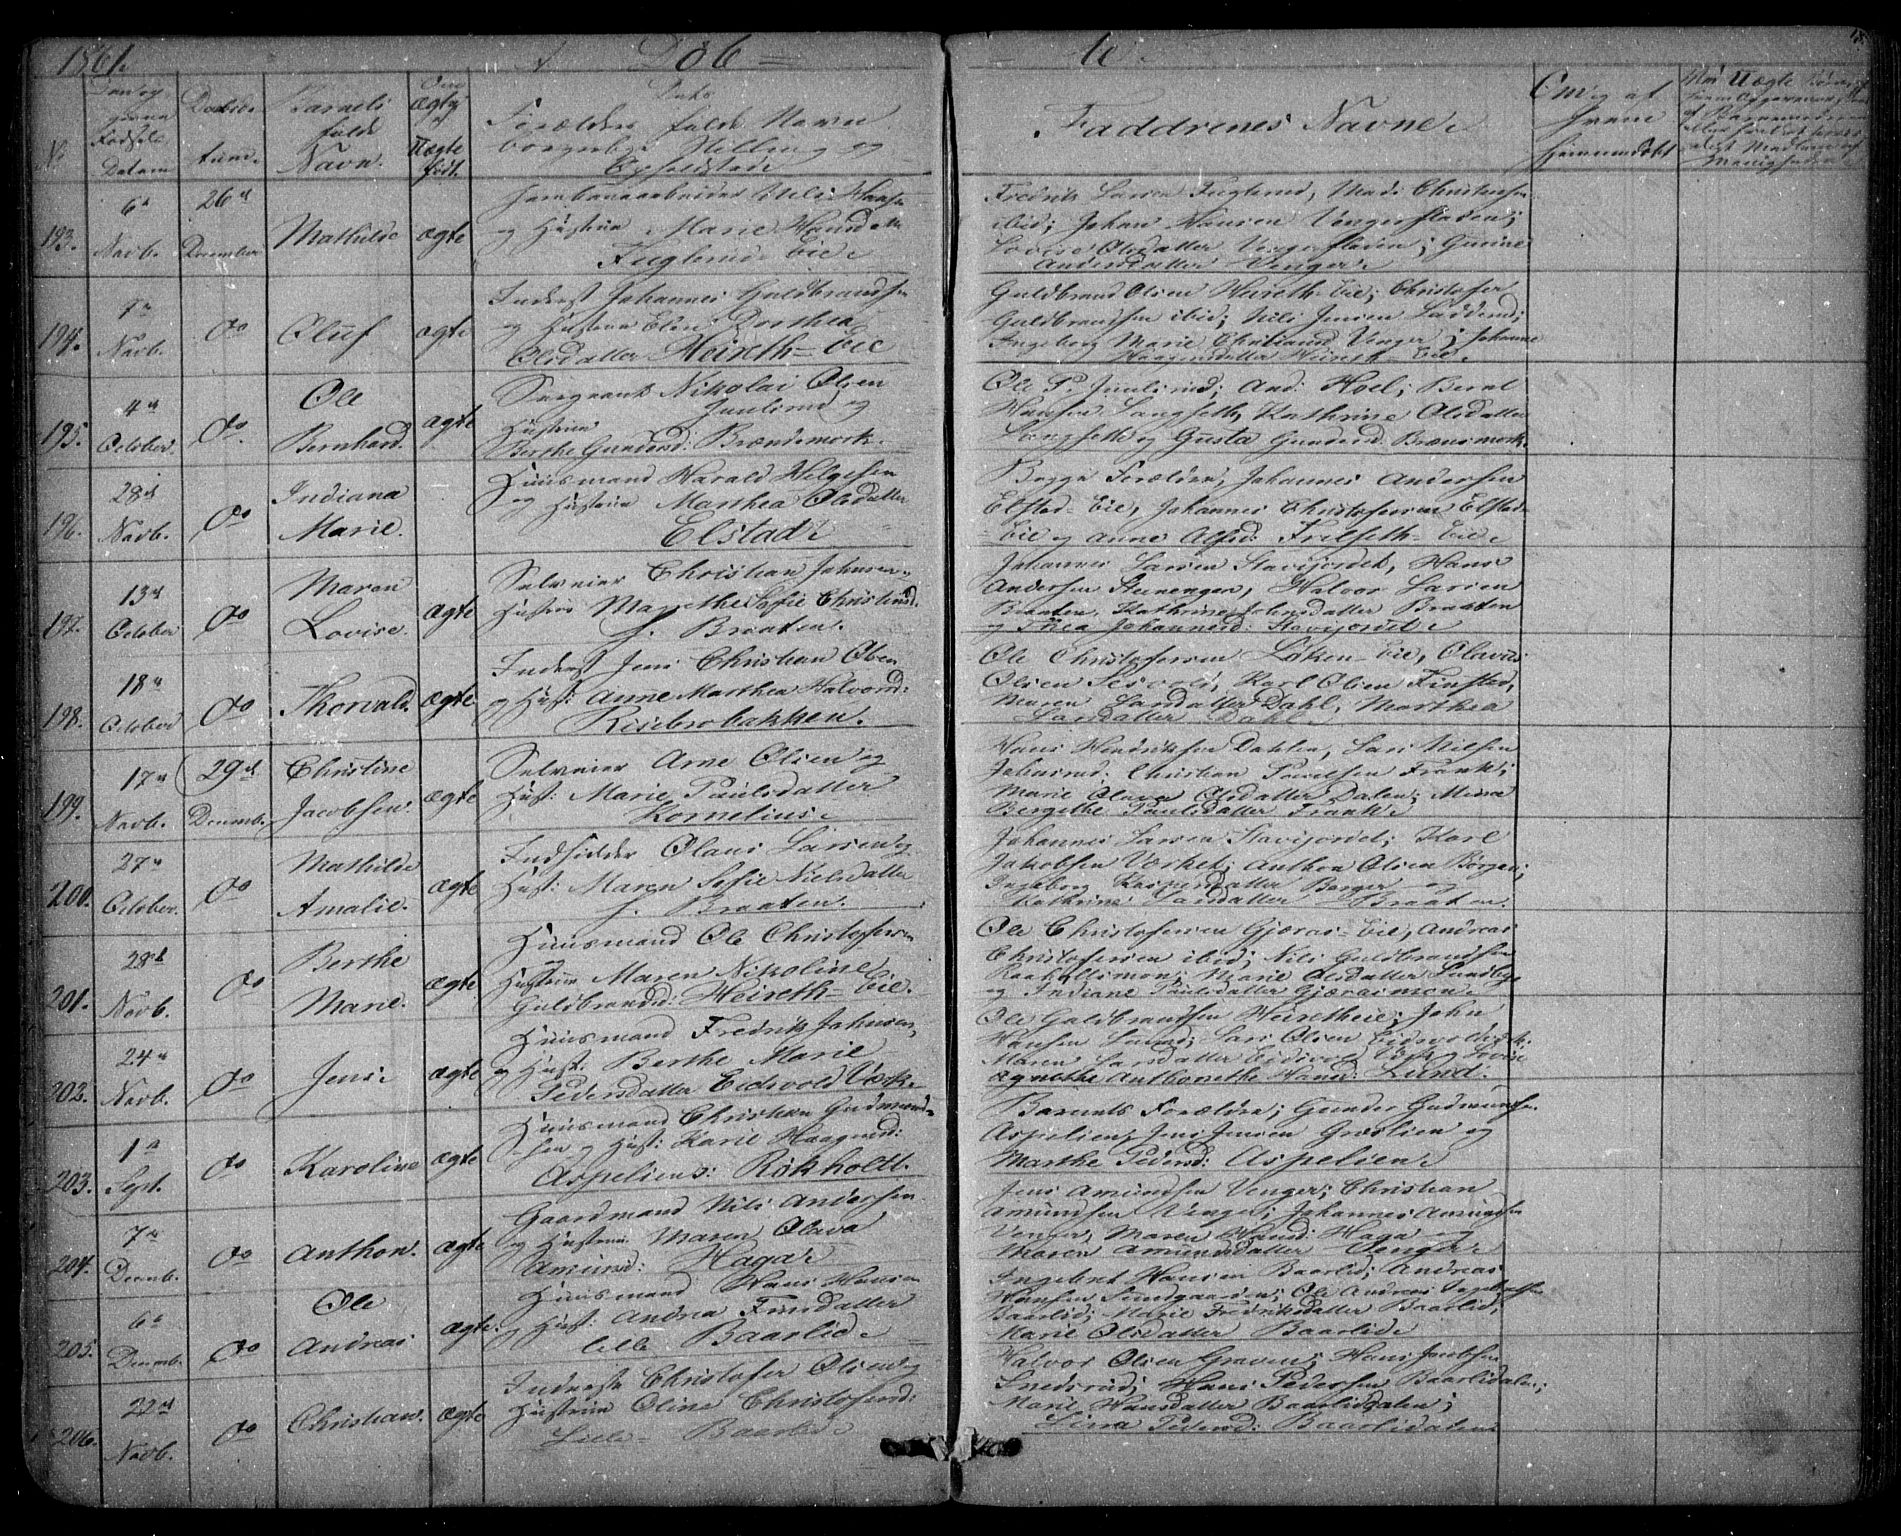 1861.
Døbte.
No
Datum
Daabsdatum.
Barnets fulde Navn.
Om ægte eller Uægte født.
Forældres fulde Navn
borgerlige Stilling og
Opholdsted
Faddrenes Navne.
Om og af hvem hjemmedøbt
193. 6te Novb. 26de December Mathilde ægte
og Hustrue Marie Hansdatter
Fuglerud Eie.
Fredrik Larsen Fuglerud, Mads Christensen
ibid; Johan Hansen Vengerstaden;
Lovise Olsdatter Vengerstaden; Gunine
Andersdatter Venger.
194. 7de Novb. do Oluf ægte
Inderst Johannes Guldbrandsen
og Hustrue Eline Dorthea
Olsdatter Heireth-Eie
Guldbrand Olsen Heireth-Eie; Christofer
Guldbrandsen ibid; Nils Jensen
Ingeborg Marie Venger; Johanne
Haagensdatter Heireth-Eie.
195. 4de October. do Ole Bernhard. ægte
Sergeant Nikolai Olsen
Juulsrud og
Hustrue
Berthe Gundersd: Brændsmork.
Ole P. Juulsrud; And: Hoel; Bernt
Hansen Langseth, Kathrine Olsdatter
Langseth og Gusta Gundersd. Brænsmork.
196. 28de Novb. do Indiana Marie.
Huusmand Harald Helgesen
og Hustrue Marthea Olsdatter
Elstad.
Begge Forældre, Johannes Andersen
Elstad-Eie, Johannes Christofersen Elstad-
Eie og Anne Alfsd: Frilseth-Eie.
197. 13de October do Maren Lovise. ægte
Selveier Christian Johnsen,
Hustrue Marethe Sofie Christiansd.
S. Braaten.
Johannes Larsen Stavijordet, Hans
Andersen Steenenger, Halvor Larsen
Braaten, Kathrine Jensdatter Braaten
og Thea Johannesd: Stavijordet.
198. 18de October do Thorvald. ægte
Inderst Jens Christian Olsen
og Hust: Anne Marthea Halvorsd:
Risebrobakken.
Ole Christofersen Løken-Eie, Olavus
Olsen Sesvold, Karl Olsen Finstad,
Maren Larsdatter Dahl, Marthea
Larsdatter Dahl.
199. 17de Novb. 29de Decemb. Christine Jacobsen. ægte
Selveier Arne Olsen og
Hust: Marie Paulsdatter
Kornelius.
Hans Hendriksen Dahlen, Lars Nilsen
Johnsrud. Christian Paulsen Frank;
Marie Olava Olsdatter Dalen; Mina
Bergithe Paulsdatter Frank.
200. 27de October. do Mathilde Amalie. ægte
Indsidder Olaus Larsen og
Hust: Maren Sofie Nielsdatter
S. Braaten.
Johannes Larsen Stavijordet; Karl
Jakobsen Værket; Anthon Olsen Borger;
Ingeborg Kaspersdatter Borger og
Kathrine Larsdatter Braaten.
201. 28de Novb. do Berthe Marie. ægte
Huusmand Ole Christofersen
Hustrue Maren Nikoline
Guldbrandsd: Heireth-Eie.
Ole Christofersen Gjæras-Eie, Andreas
Christofersen ibid; Nils Guldbrandsen
Raaholtsmoen; Marie Olsdatter Lundby
og Indiane Paulsdatter Gjærasmoen.
202. 24de Novb. do Jens. ægte
Huusmand Fredrik Johnsen,
og Hust: Berthe Marie
Pedersdatter Eidsvold Værk.
Ole Guldbrandsen Heiretheie; John
Hansen Lund; Lars Olsen Eidsvold Værk;
Maren Larsdatter Eidsvold Værk og
Agnethe Anthonethe Hansd: Lund.
203. 1ste Sept. do Karoline ægte
Huusmand Christian Gudmund-
sen og Hust: Karie Haagensd:
Aspelien s: Rökholdt.
Barnets Forældre; Gunder Gudmundsen
Aspelien, Jens Jensen Græslien og
Marthe Pedersd: Aspelien.
204. 7de Decemb. do Anthon. ægte
Gaardmand Nils Andersen
og Hustrue Maren Olava
Amundsd: Haga.
Jens Amundsen Venger; Christian
Amundsen Venger; Johannes Amundsen
Venger, Maren Hansd: Haga og
Maren Amundsdatter Venger.
205. 6te Decemb. do Ole Andreas ægte.
Huusmand Hans Hansen
og Hust: Andrea Finsdatter
lille Baarlid.
Ingebret Hansen Baarlid; Andreas
Hansen Sundgaarden; Ole Andreas Ingebretsen
Baarlid; Marie Fredriksdatter Baarlid,
Marie Olsdatter Baarlid.
206. 22de Novb. do Christian. ægte
Inderste Christofer Olsen og
Hustrue Oline Christofersd:
Lille-Baarlid.
Halvor Olsen Graven; Hans Jacobsen
Snedsrud; Hans Pedersen Baarlidalen;
Marie Hansdatter Baarlidalen;
Lina Pedersd: Baarlidalen.